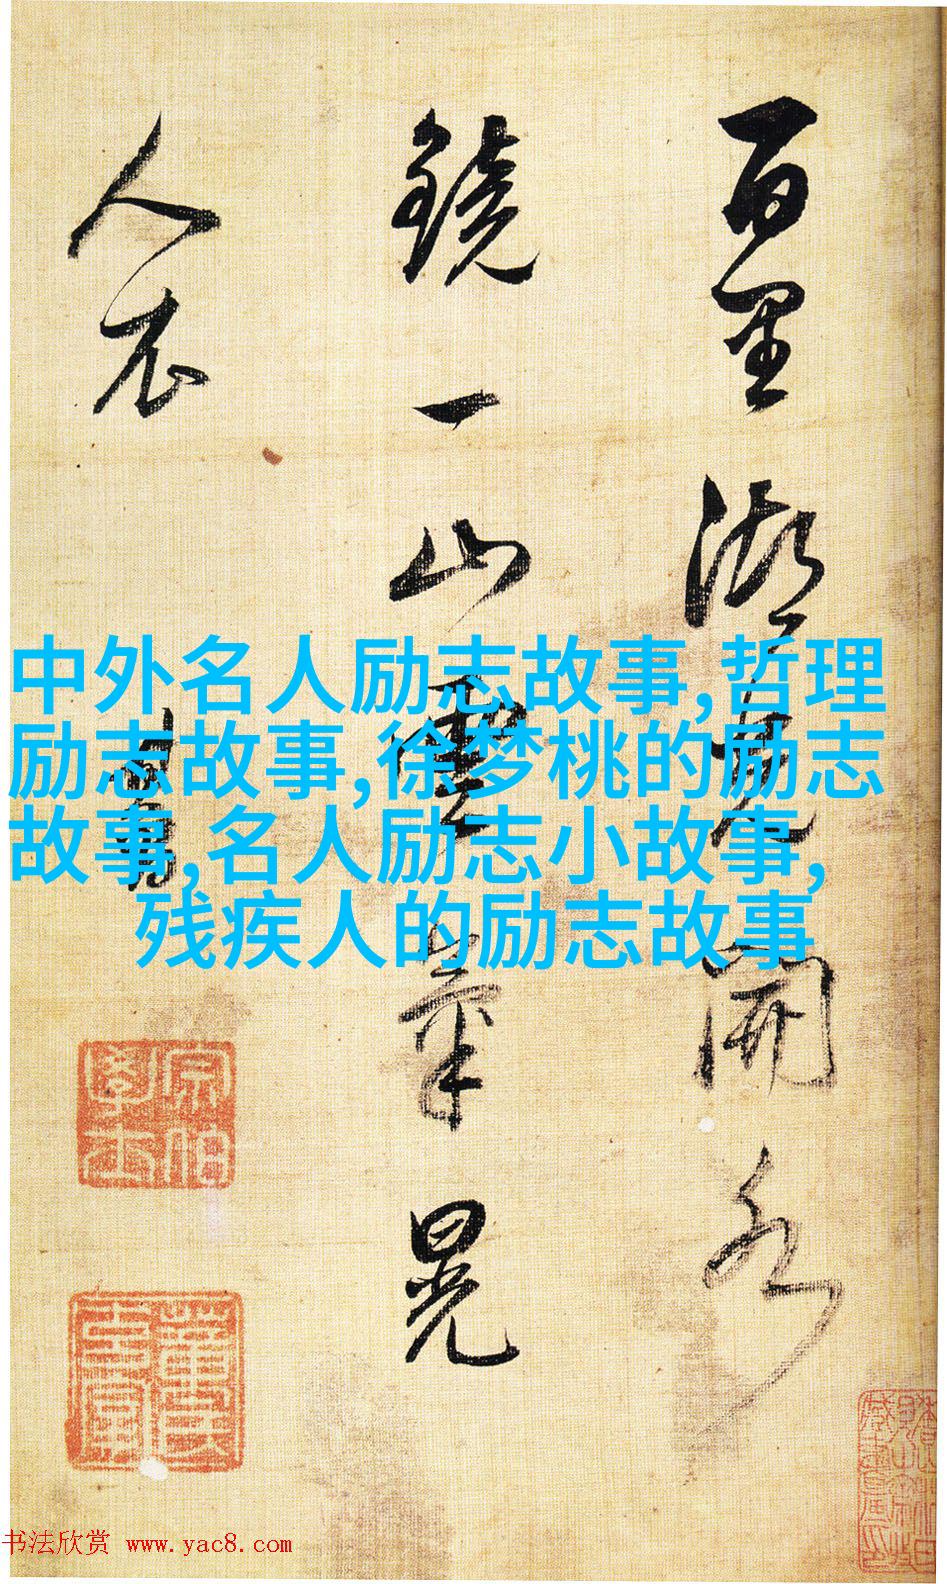 百里湖光開水
鏡一山雲氣晃
人衣
其昌
宗伯學士
董氏玄宰
中外名人励志故事,哲理
励志故事,徐梦桃的励志
故事,名人励志小故事,
残疾人的励志故事
书法欣赏 www.yac8.com